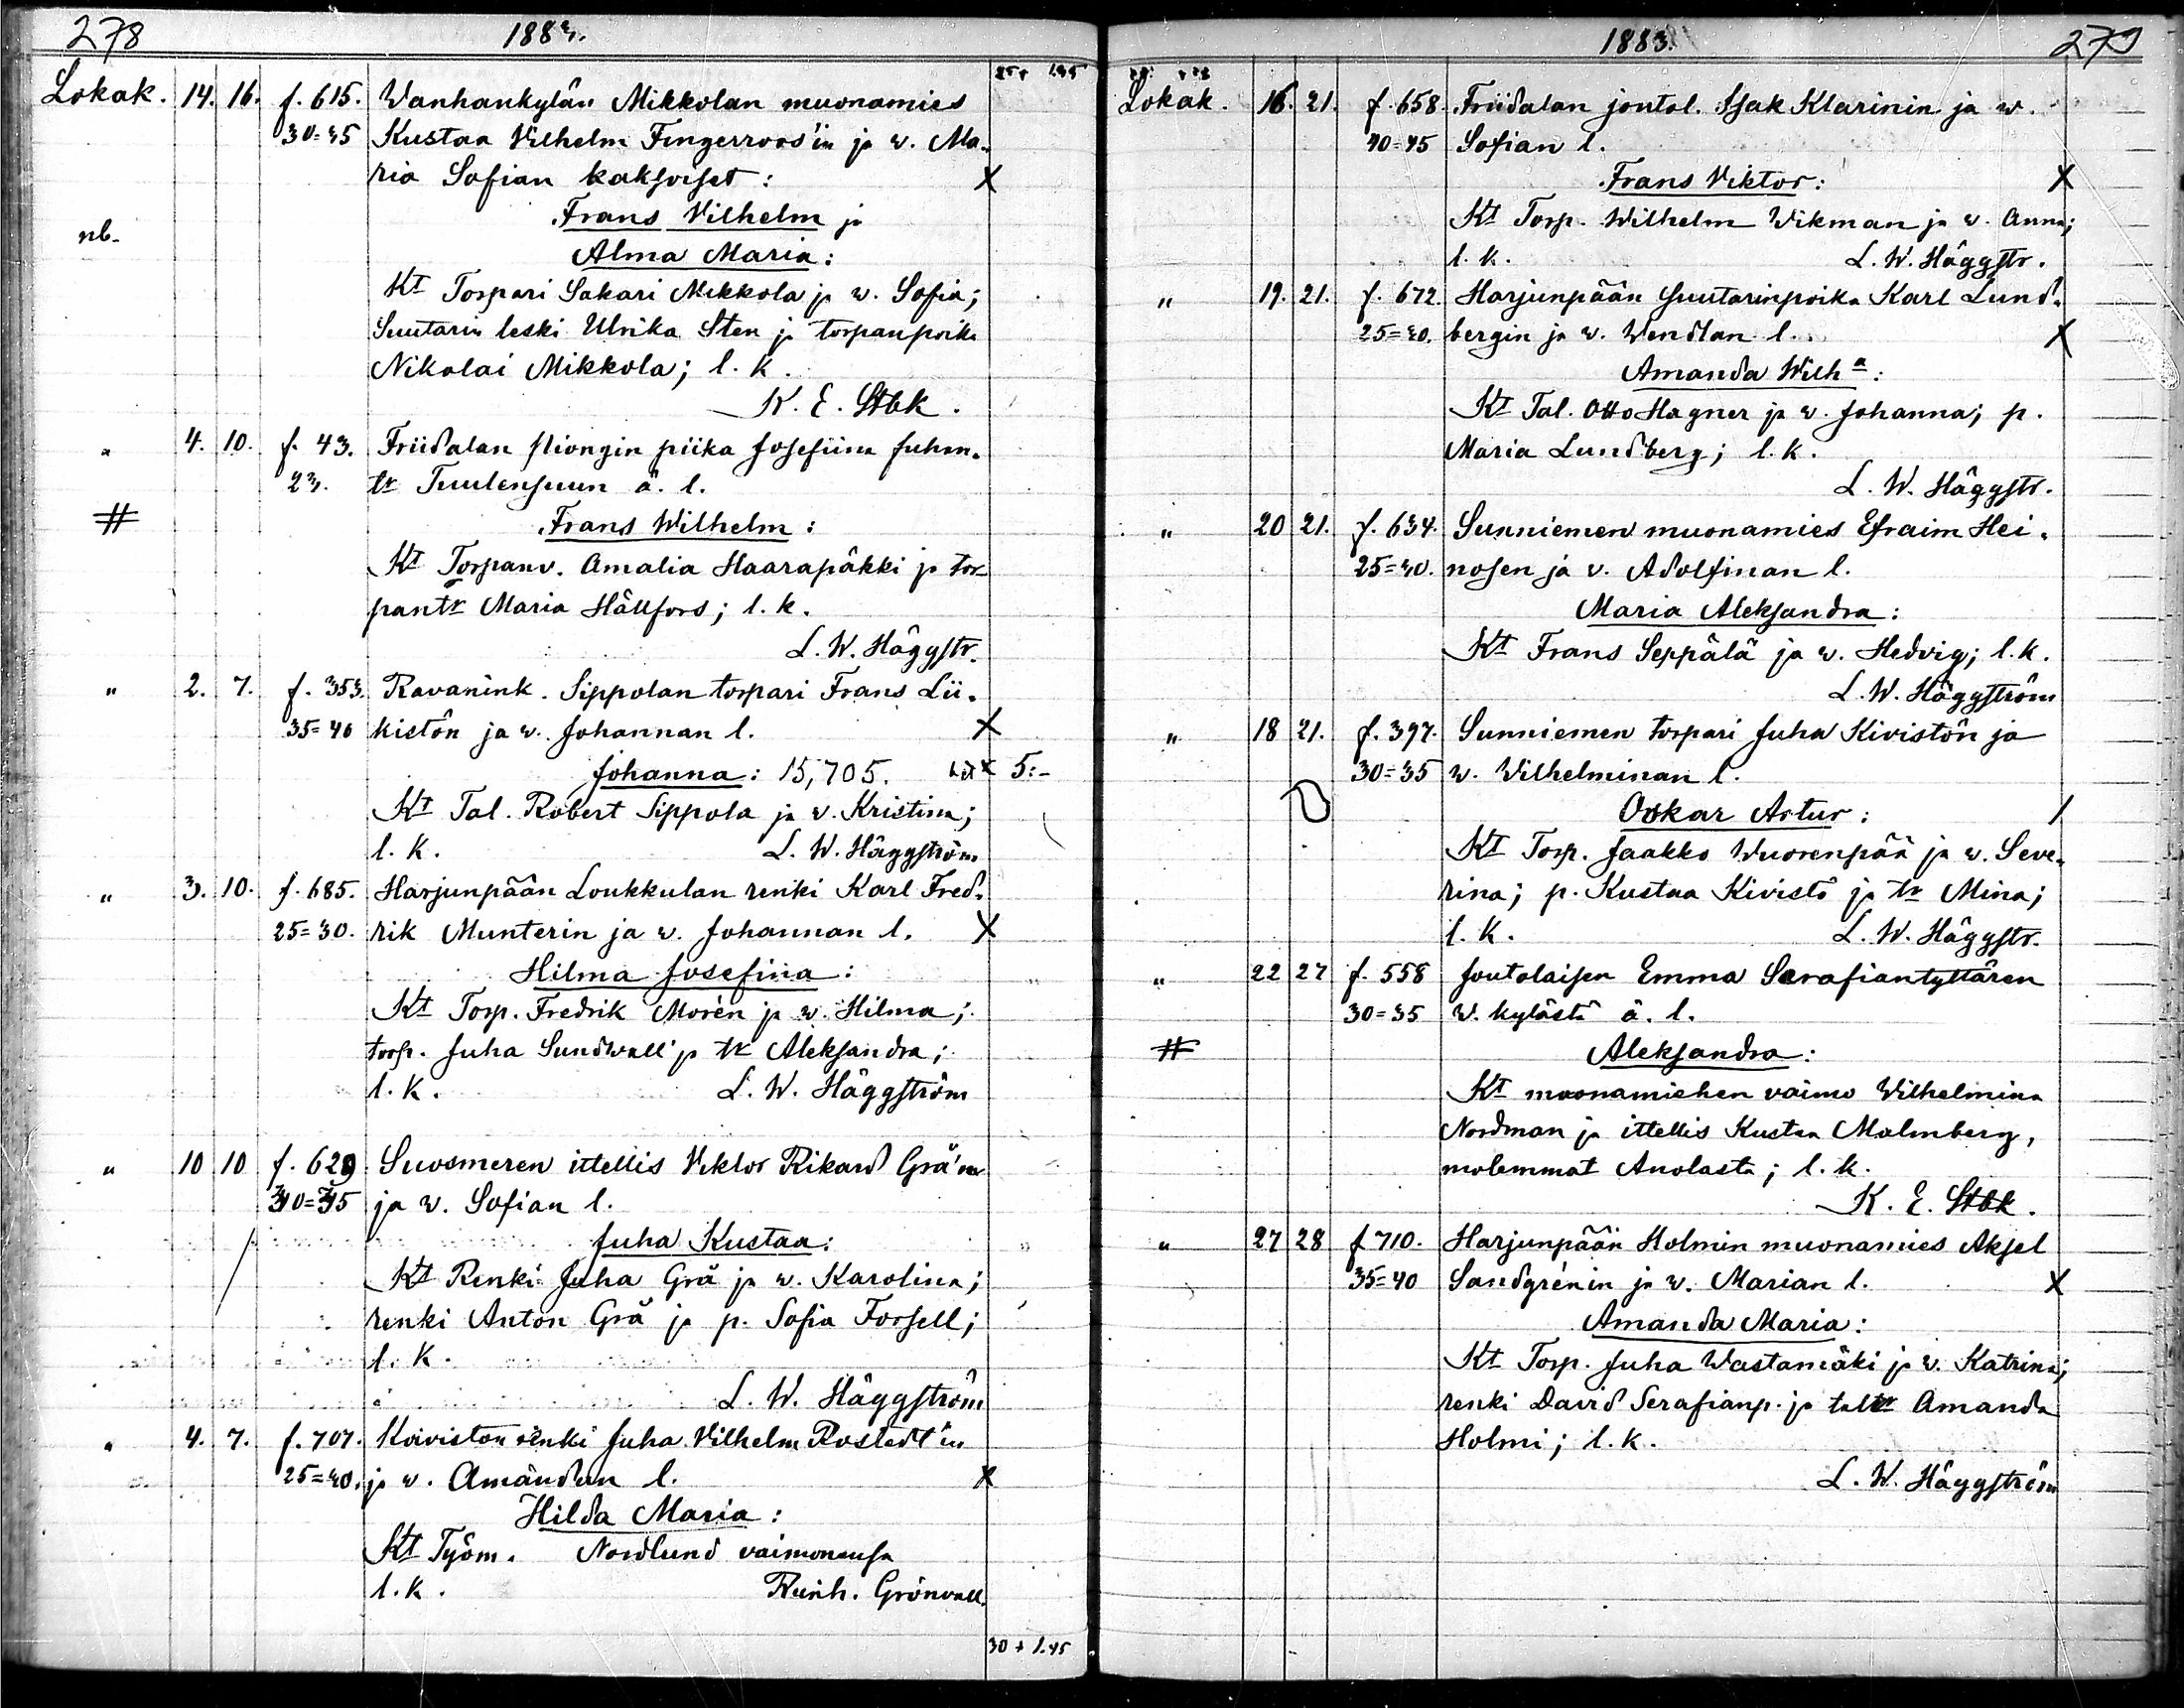 278 1883.
25+ 1.45
Lokak. 14. 16. f. 615. Wanhankylän Mikkolan muonamies
30=35 Kustaa Vilhelm Fingerroos'in ja w. Ma-
ria Sofian kaksoiset: X
Frans Vilhelm ja
nb.
Alma Maria:
Kt Torpari Sakari Mikkola ja w. Sofia;
Suutarin leski Ulrika Sten ja torpanpoika
Nikolai Mikkola; l. k.
K. E. Stbk.
" 4. 10. f. 43. Friidalan piika Josefiina Juhan-
23. tr Tuulensuun ä. l.
# Frans Wilhelm:
Kt Torpanv. Amalia Haarapäkki ja tor-
pantr Maria Hällfors; l. k.
L. W. Häggstr.
" 2. 7. f. 353. Ravanink. Sippolan torpari Frans Lii-
35=40 kistön ja w. Johannan l. X
Johanna: 15,705. 5:-
Kt Tal. Robert Sippola ja v. Kristina;
l. k. L. W. Häggström
" 3. 10. f. 685. Harjunpään Loukkulan renki Karl Fred-
25=30. rik Munterin ja w. Johannan l. X
Hilma Josefina:
Kt Torp. Fredrik Morén ja w. Hilma;
torp. Juha Sundwall ja tr Aleksandra;
l. k. L. W. Häggström
" 10 10 f. 629. Suosmeren ittellis Viktor Rikard Grå'n
ja w. Sofian l.
Juha Kustaa:
Kt Renki Juha Grå ja w. Karolina;
renki Anton Grå ja p. Sofia Forsell;
l. k.
L. W. Häggström
" 4. 7. f. 707. Koiviston renki Juha Vilhelm Rostedt'in
25=30. ja w. Amandan l. X
Hilda Maria:
Kt Työm. Nordlund vaimonensa
l. k. Reinh. Grönvall.
30 + 1.45
1883. 279
Lokak. 16. 21. f. 658. Friidalan joutol. Isak Klarinin ja w.
40=45 Sofian l.
Frans Viktor: X
Kt Torp. Wilhelm Wikman ja w. Anna;
l. k. L. W. Häggstr.
" 19. 21. f. 672. Harjunpään suutarinpoika Karl Lund-
25=30. bergin ja w. Wendlan l. X
Amanda Wilha:
Kt Tal. Otto Hagner ja w. Johanna; p.
Maria Lundberg; l. k.
L. W. Häggstr.
" 20 21. f. 634. Sunniemen muonamies Efraim Hei-
25=30. nosen ja v. Adolfinan l.
Maria Aleksandra:
Kt Frans Seppälä ja w. Hedvig; l. k.
L. W. Häggström
" 18 21. f. 397. Sunniemen torpari Juha Kivistön ja
30=35 w. Wilhelminan l.
Oskar Artur: /
Kt Torp. Jaakko Wuorenpää ja w. Seve-
rina; p. Kustaa Kivistö ja tr Mina;
l. k. L. W. Häggstr.
" 22 27 f. 558 Joutolaisen Emma Serafiantyttären
30=35 W. kylästä ä. l.
# Aleksandra:
Kt muonamiehen vaimo Wilhelmina
Nordman ja ittellis Kustaa Malmberg,
molemmat Anolasta; l. k.
K. E. Stbk.
" 27 28 f 710. Harjunpään Holmin muonamies Aksel
35=40 Sandgrénin ja w. Marian l. X
Amanda Maria:
Kt Torp. Juha Wastamäki ja v. Katrina;
renki David Serafianp. ja taltr Amanda
Holmi; l. k.
L. W. Häggström